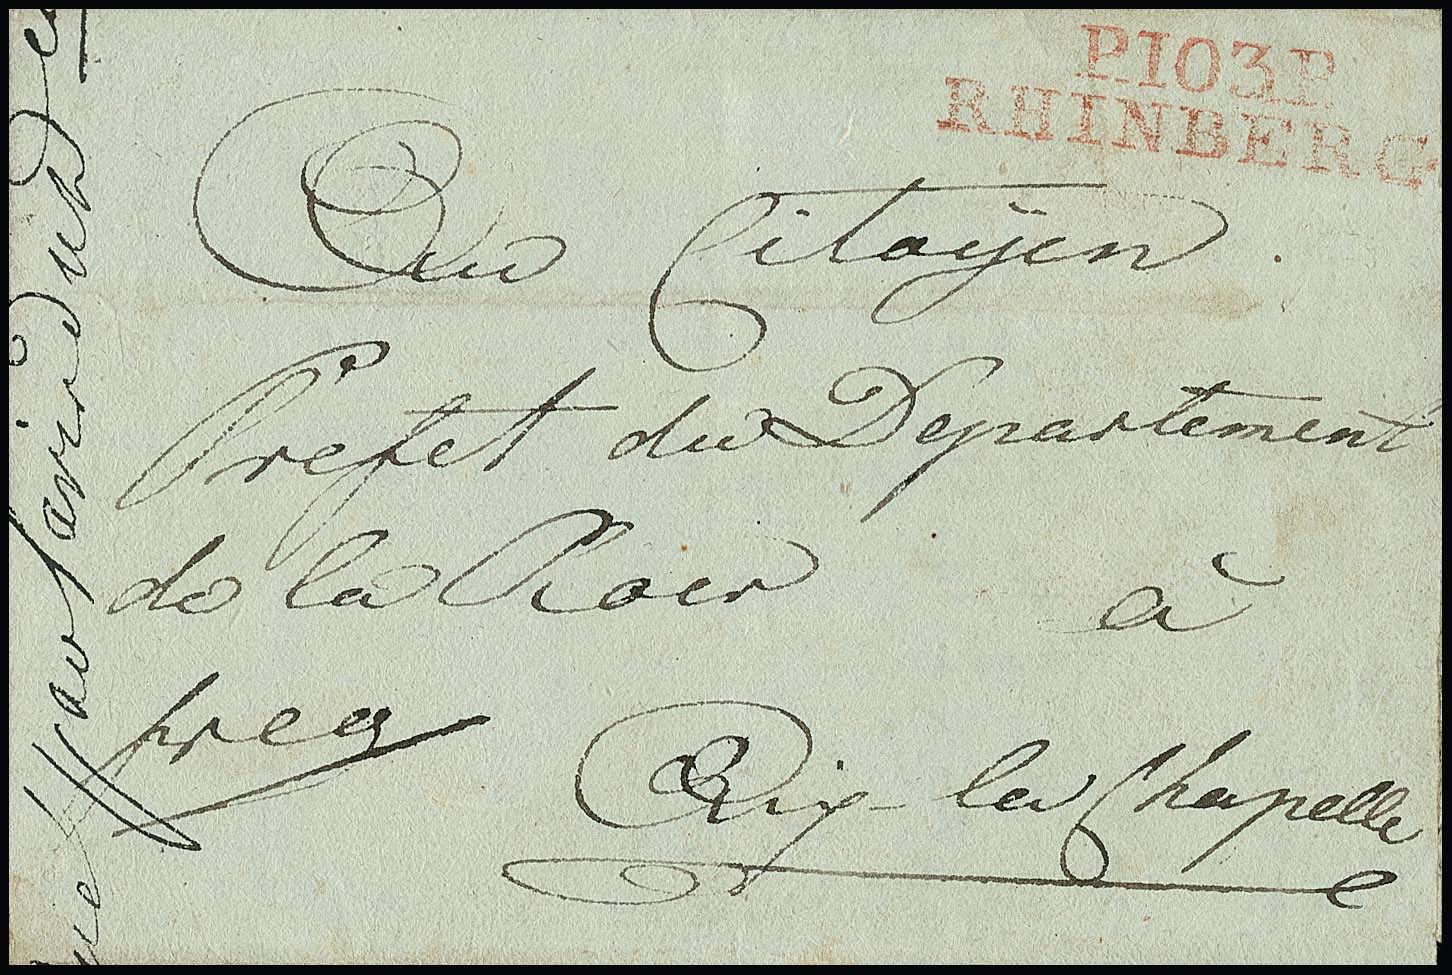 P.103.P.
RHINBERG
Au Citoÿen
Prefet du Departement
de la Roer à
Aix-la Chapelle